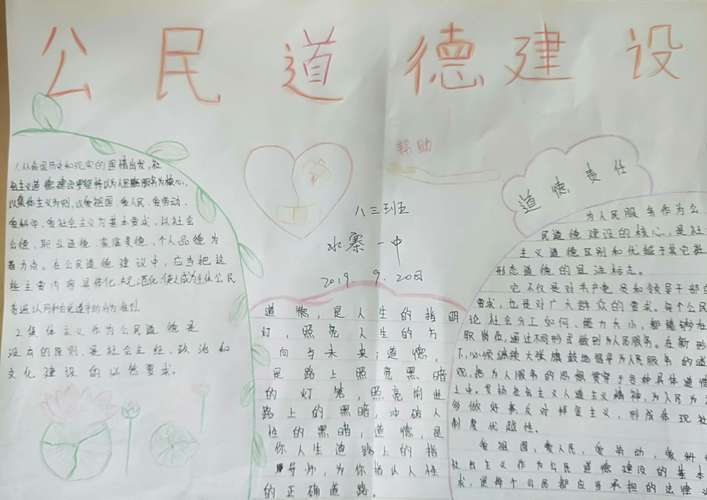 公民道德建设
1.从我国历史和现实的国情出发,社
会主义道德建设要坚持以为人民服务为核心,
以集体主义为原则,以爱祖国、爱人民、爱劳动、
爱科学、爱社会主义为基本要求,以社会
公德、职业道德、家庭美德、个人品德为
着力点。在公民道德建设中,应当把这
些主要内容具体化、规范化,使之成为全体公民
普遍认同和自觉遵守的行为准则
2.集体主义作为公民道德建
设的原则,是社会主经、政治和
文化建设的必然要求.
帮助
八三班
水寨一中
2019.9.20日
道德,是人生的指明
灯,照亮人生的方
向与未来;道德,
是路上照亮黑暗
的灯笼,照亮前进
路上的黑暗,冲破人
性的黑暗,道德,是
你人生道路上的指
导师,为你指认人性
的正确道路.
道德责任
为人民服务作为公
民道德建设的核心,是社
主义道德区别和优越于其它社
形态道德的显注标志。
它不仅是对共产党员和领导干部的
要求,也是对广大群众的要求。每个公民
论社会分工如何、能力大小,都能够在
职岗位,通过不同形式做到为人民服务。在新形
下,必须继续大张旗鼓地倡导为人民服务的道
观,把为人服务的思想贯穿于各种具体道德
之中,发扬社会主义人道主义精神,为人民为
多做好事反对拜金主义,形成体现社
制度优越性.
爱祖国、爱人民、爱劳动、爱科
社会主义作为公民道德建设的基本
求,是每个公民都应当承担的法律义